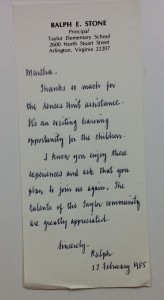 RALPH E. STONE
Principal
Taylor Elementary School
2600 North Stuart Street
Arlington, Virginia 22207
Martha -
Thanks so much for
the Senses Unit assistance.
It's an exciting learning
opportunity for the children.
I know you enjoy these
experiences and ask that you
plan to join us again. The
talents of the Taylor community
are greatly appreciated.
Sincerely,
Ralph
27 February 1985